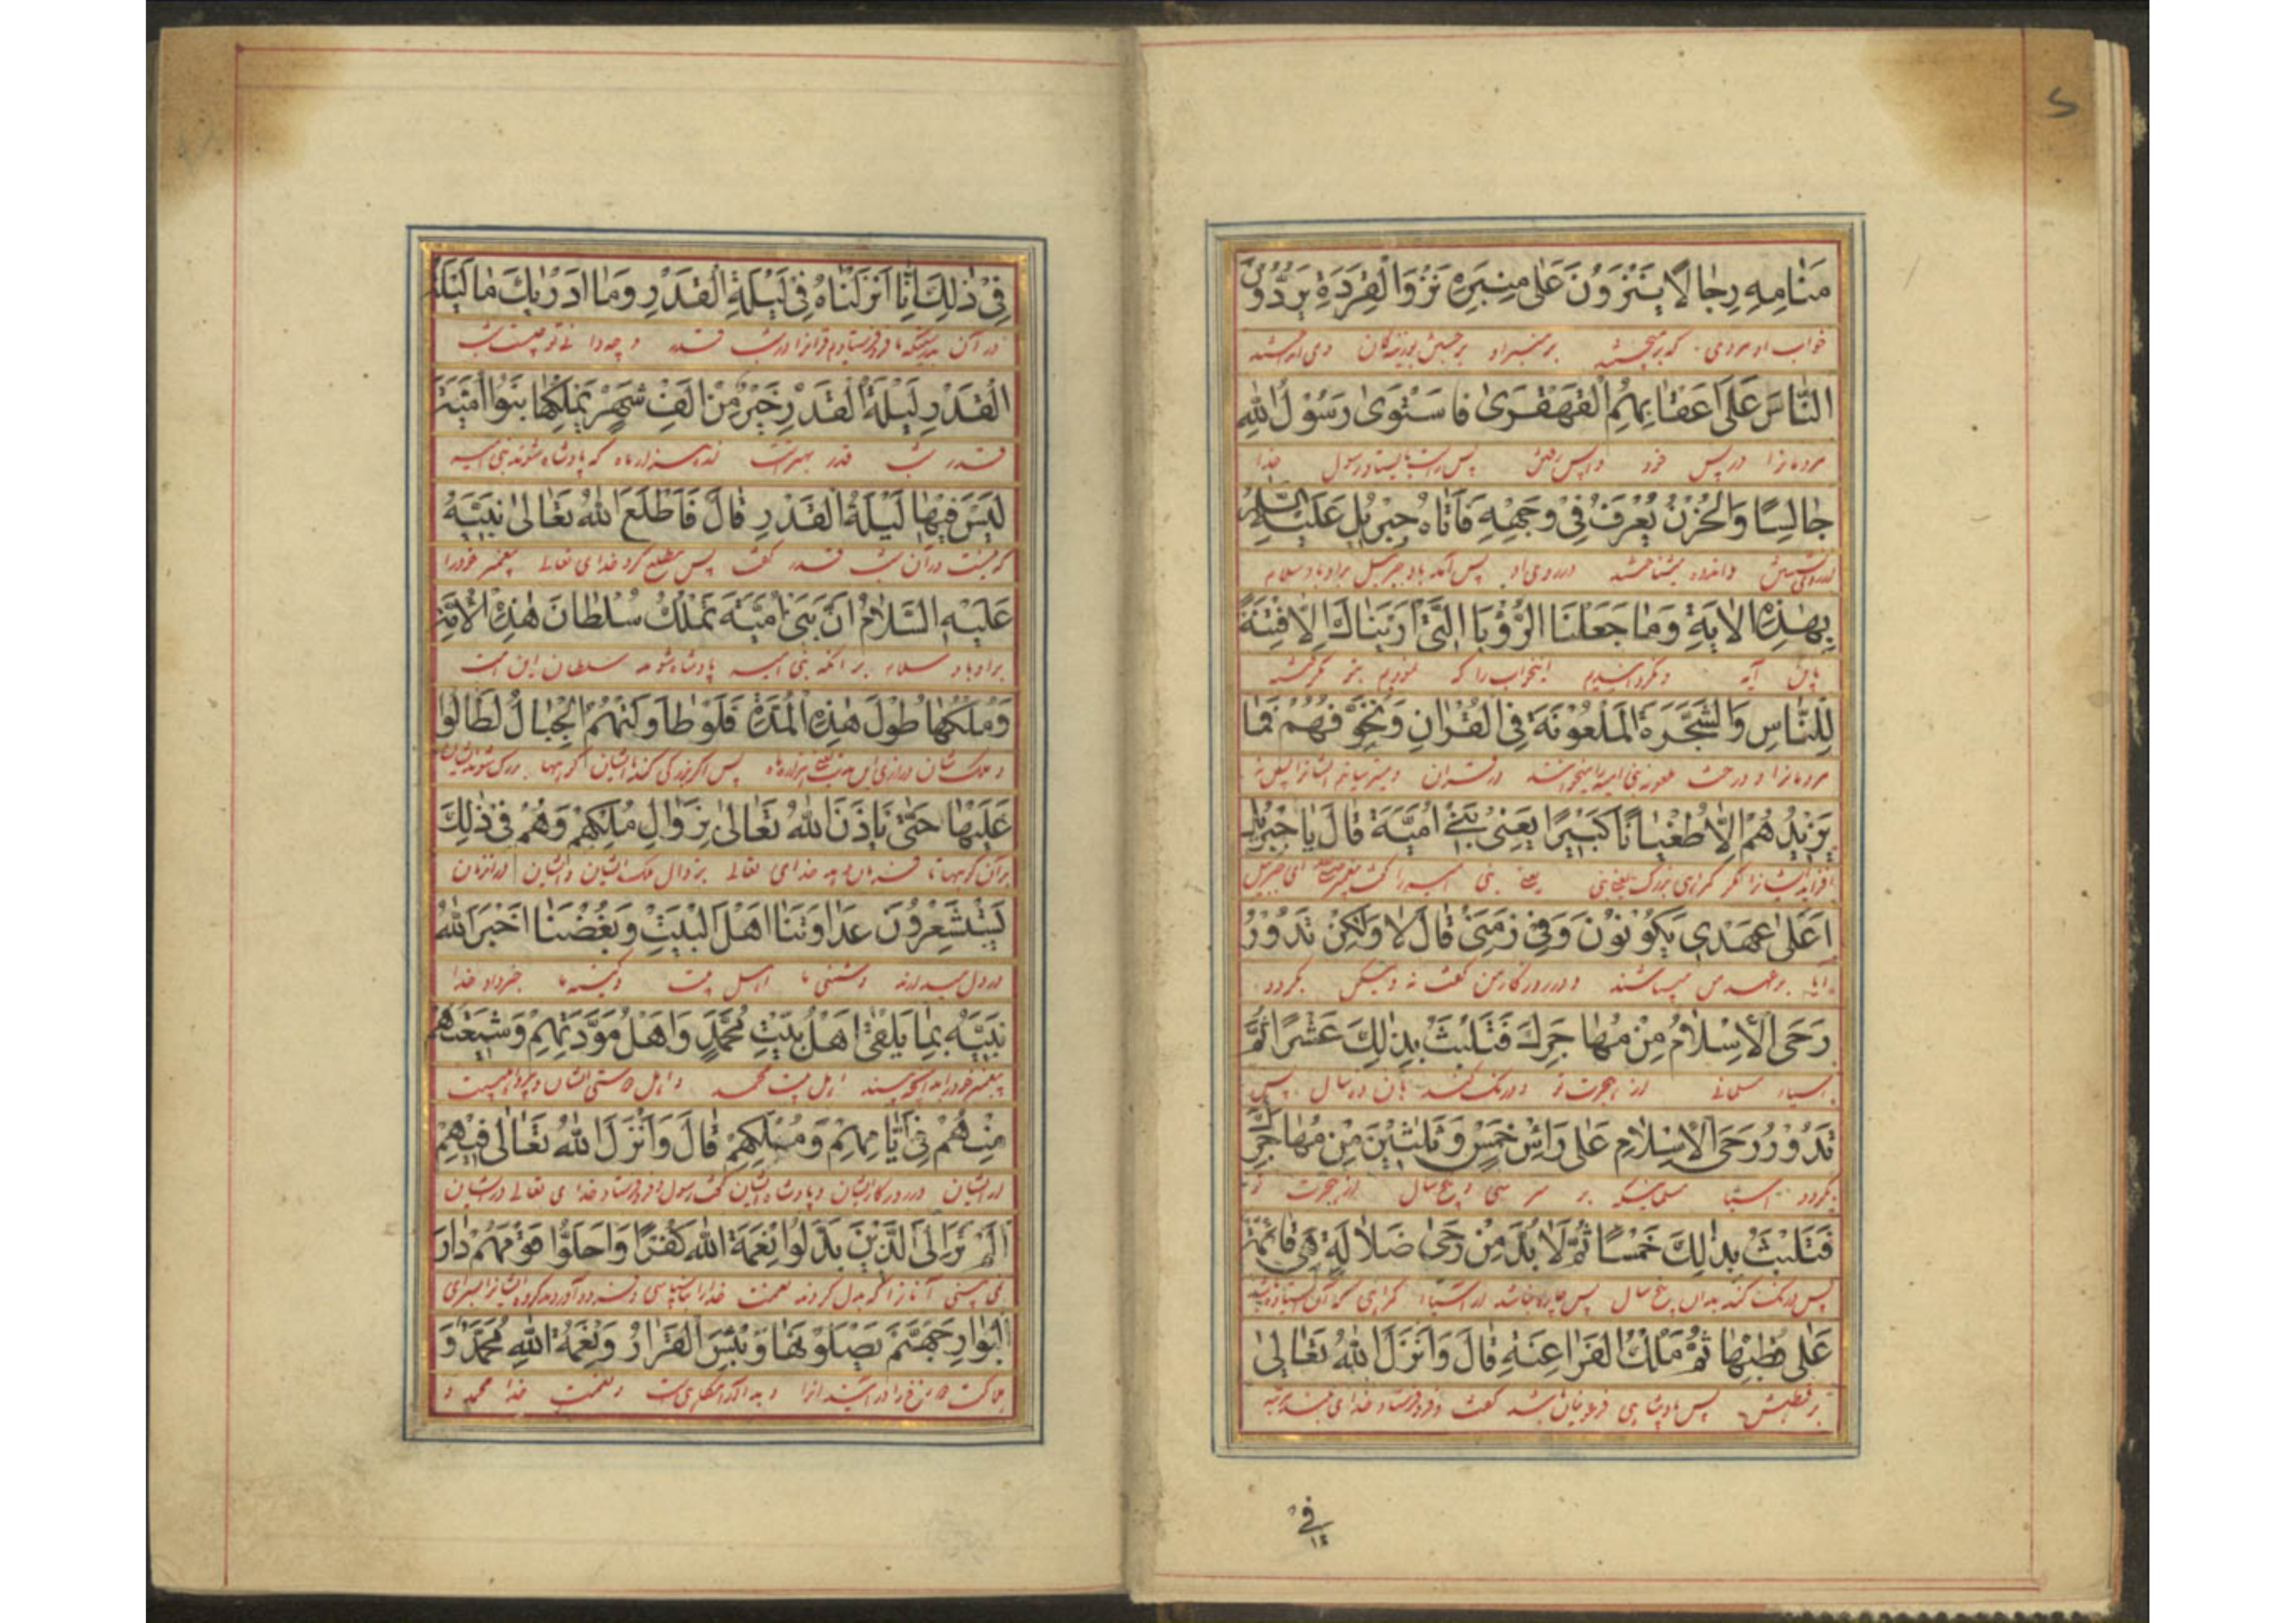 مَنَامِهِ رِجَالًا يَنْزُونَ عَلٰى مِنْبَرِهِ نَزْوَ الْقِرَدَةِ يَرُدُّونَ
خواب او مردی که برمیجستند بر منبر او برجستن بوزینگان
النَّاسَ عَلٰى اَعْقَابِهِمُ الْقَهْقَرٰى فَاسْتَوٰى رَسُوْلُ اللهِ
مردمانرا در پس خود واپس رفتن پس راست بایستاد رسول خدا
جَالِسًا وَالْحُزْنُ يُعْرَفُ فِيْ وَجْهِهِ فَاَتَاهُ جِبْرِيْلُ عَلَيْهِ السَّلَامُ
و اندوه میشناختند در روی او پس آمد باو جبرئیل براو باد سلام
بِهٰذِهِ الْاٰيَةِ وَمَا جَعَلْنَا الرُّؤْيَا الَّتِيْ اَرَيْنَاكَ اِلَّا فِتْنَةً
باین آیه و نگردانیدیم اینخواب را که نمودیم بتو مگر فتنه
لِلنَّاسِ وَالشَّجَرَةَ الْمَلْعُوْنَةَ فِي الْقُرْاٰنِ وَنُخَوِّفُهُمْ فَمَا
مردمانرا و درخت ملعونه در قران و میترسانیم ایشانرا پس
يَزِيْدُهُمْ اِلَّا طُغْيَانًا كَبِيْرًا يَعْنِيْ بَنِيْ اُمَيَّةَ قَالَ يَا جِبْرِيْلُ
مگر گمراهی بزرک یعنی بنی امیه را ای جبرئیل
اَعَلٰى عَهْدِيْ يَكُوْنُوْنَ وَفِيْ زَمَنِيْ قَالَ لَا وَلٰكِنْ تَدُوْرُ
آیا بر عهد من میباشند و در روزکار من گفت نه ولیکن بگردد
رَحَى الْاِسْلَامُ مِنْ مُهَاجَرِكَ فَتَلْبَثُ بِذٰلِكَ عَشْرًا ثُمَّ
آسیاء مسلمانی از هجرت تو و درنگ کند بان ده سال پس
تَدُوْرُ رَحَى الْاِسْلَامِ عَلٰى رَاْسِ خَمْسٍ وَثَلٰثِيْنَ مِنْ مُهَاجَرِكَ
بگردد آسیا بر سر سی و پنج سال از هجرت تو
فَتَلْبَثُ بِذٰلِكَ خَمْسًا ثُمَّ لَا بُدَّ مِنْ رَحٰى ضَلَالَةٍ هِيَ قَائِمَةٌ
پس درنک کند بدان پنج سال پس چاره نباشد از آسیاء گمراهی که آن
عَلٰى قُطْبِهَا ثُمَّ مُلْكُ الْفَرَاعِنَةِ قَالَ وَاَنْزَلَ اللهُ تَعَالٰى
بر قطبش پس پادشاهی فرعونیان باشد گفت و فروفرستاد خدای
في
فِيْ ذٰلِكَ اِنَّا اَنْزَلْنَاهُ فِيْ لَيْلَةِ الْقَدْرِ وَمَا اَدْرٰيكَ مَا لَيْلَةُ
در آن بدرستیکه ما فروفرستادیم قرانرا در شب قدر و چه دانی تو چیست شب
الْقَدْرِ لَيْلَةُ الْقَدْرِ خَيْرٌ مِنْ اَلْفِ شَهْرٍ يَمْلِكُهَا بَنُوا اُمَيَّةَ
قدر شب قدر بهتر است از هزار ماه که پادشاه شوند بنی امیه
لَيْسَ فِيْهَا لَيْلَةُ الْقَدْرِ قَالَ فَاَطْلَعَ اللهُ تَعَالٰى نَبِيَّهُ
که نیست در آن شب قدر گفت پس مطلع کرد خدای تعالی پیغمبر خود را
عَلَيْهِ السَّلَامُ اَنَّ بَنِيْ اُمَيَّةَ تَمْلِكُ سُلْطَانَ هٰذِهِ الْاُمَّةِ
براو باد سلام بر آنکه بنی امیه پادشاه شوند سلطان این امت
وَمُلْكَهَا طُوْلَ هٰذِهِ الْمُدَّةِ فَلَوْ طَاوَلَتْهُمُ الْجِبَالُ لَطَالُوْا
و ملک شان درازی این مدت یعنی هزار ماه پس اگر
عَلَيْهَا حَتّٰى يَاْذَنَ اللهُ تَعَالٰى بِزَوَالِ مُلْكِهِمْ وَهُمْ فِيْ ذٰلِكَ
بر آن کوهها تا خدای تعالی بزوال ملک ایشان و ایشان در آنزمان
يَسْتَشْعِرُوْنَ عَدَاوَتَنَا اَهْلَ الْبَيْتِ وَبُغْضَنَا اَخْبَرَ اللهُ
در دل میدارند دشمنی ما اهل بیت و کینه ما خبر داد خدا
نَبِيَّهُ بِمَا يَلْقٰى اَهْلُ بَيْتِ مُحَمَّدٍ وَاَهْلُ مَوَدَّتِهِمْ وَشِيْعَتُهُمْ
اهل بیت محمد و اهل دوستی ایشان
مِنْهُمْ فِيْ اَيَّامِهِمْ وَمُلْكِهِمْ قَالَ وَاَنْزَلَ اللهُ تَعَالٰى فِيْهِمْ
از ایشان در روزکار ایشان و پادشاهی ایشان گفت رسول و فروفرستاد خدای تعالی در ایشان
اَلَمْ تَرَ اِلَى الَّذِيْنَ بَدَّلُوْا نِعْمَةَ اللهِ كُفْرًا وَاَحَلُّوْا قَوْمَهُمْ دَارَ
نمی بینی آنانرا که بدل کردند نعمت خدا را
الْبَوَارِ جَهَنَّمَ يَصْلَوْنَهَا وَبِئْسَ الْقَرَارُ وَنِعْمَةُ اللهِ مُحَمَّدٌ وَ
و نعمت خدا محمد و